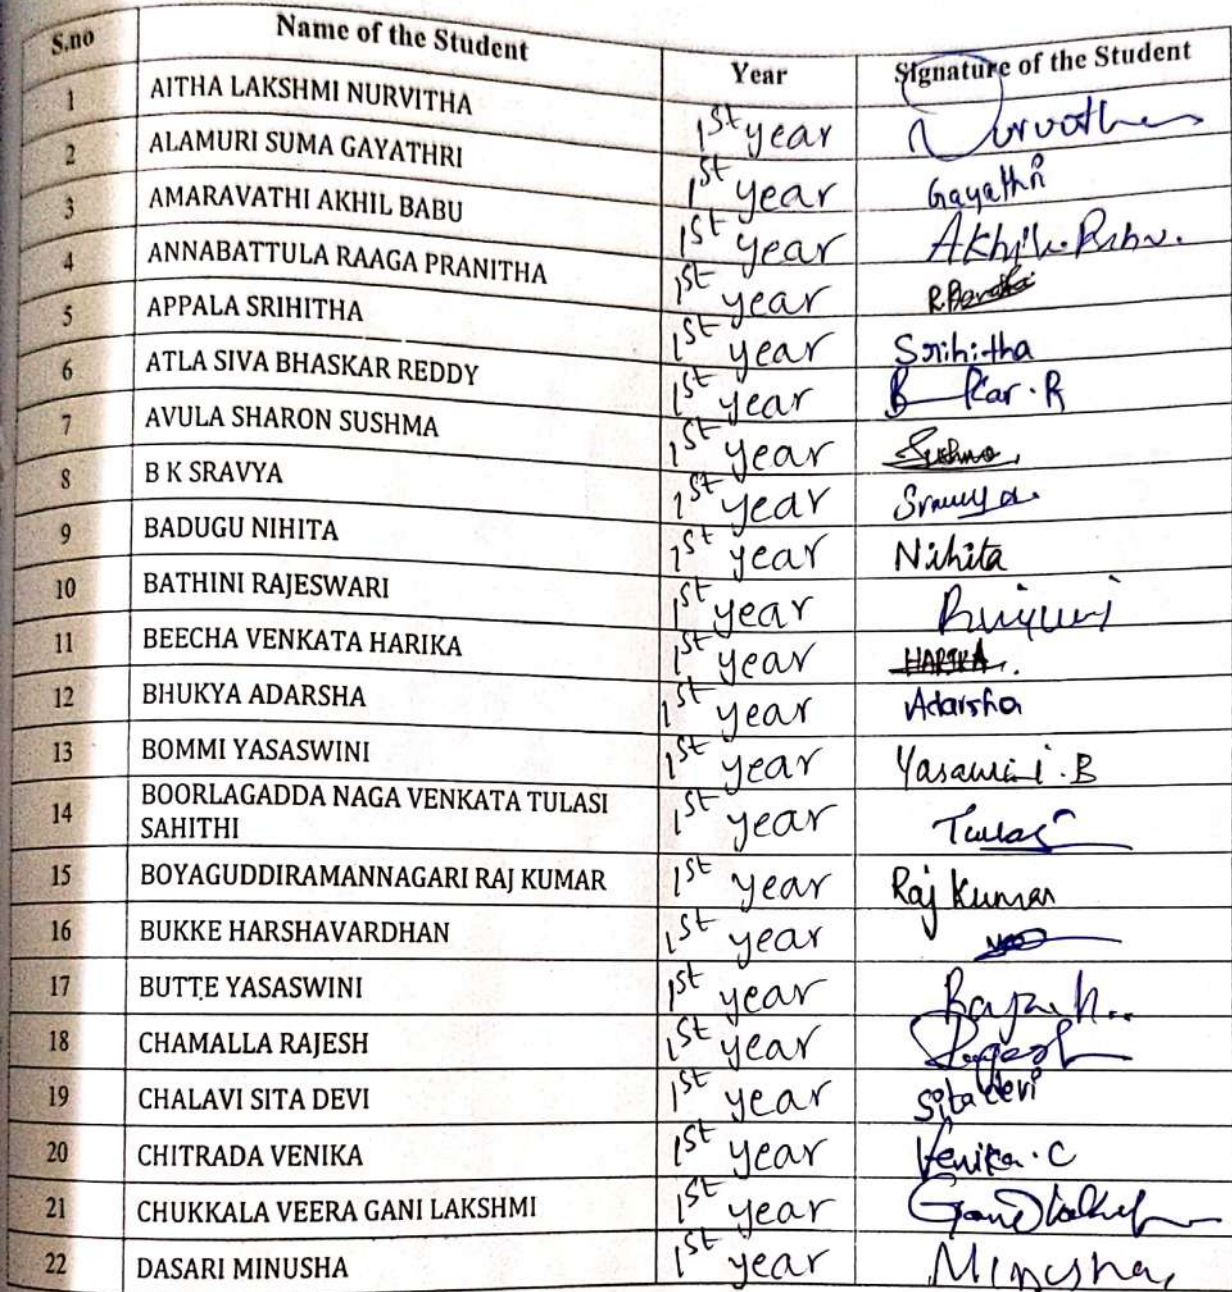 S.no Name of the Student Year Signature of the Student
1 AITHA LAKSHMI NURVITHA 1st year
2 ALAMURI SUMA GAYATHRI 1st year Gayathri
3 AMARAVATHI AKHIL BABU 1st year Akhil Babu.
4 ANNABATTULA RAAGA PRANITHA 1st year
5 APPALA SRIHITHA 1st year Srihitha
6 ATLA SIVA BHASKAR REDDY 1st year
7 AVULA SHARON SUSHMA 1st year Sushma
8 B K SRAVYA 1st year Sravya
9 BADUGU NIHITA 1st year Nihita
10 BATHINI RAJESWARI 1st year
11 BEECHA VENKATA HARIKA 1st year HARIKA.
12 BHUKYA ADARSHA 1st year Adarsha
13 BOMMI YASASWINI 1st year
14 BOORLAGADDA NAGA VENKATA TULASI
SAHITHI 1st year Tulasi
15 BOYAGUDDIRAMANNAGARI RAJ KUMAR 1st year Raj Kumar
16 BUKKE HARSHAVARDHAN 1st year
17 BUTTE YASASWINI 1st year
18 CHAMALLA RAJESH 1st year Rajesh
19 CHALAVI SITA DEVI 1st year Sita devi
20 CHITRADA VENIKA 1st year Venika.C
21 CHUKKALA VEERA GANI LAKSHMI 1st year
22 DASARI MINUSHA 1st year Minusha